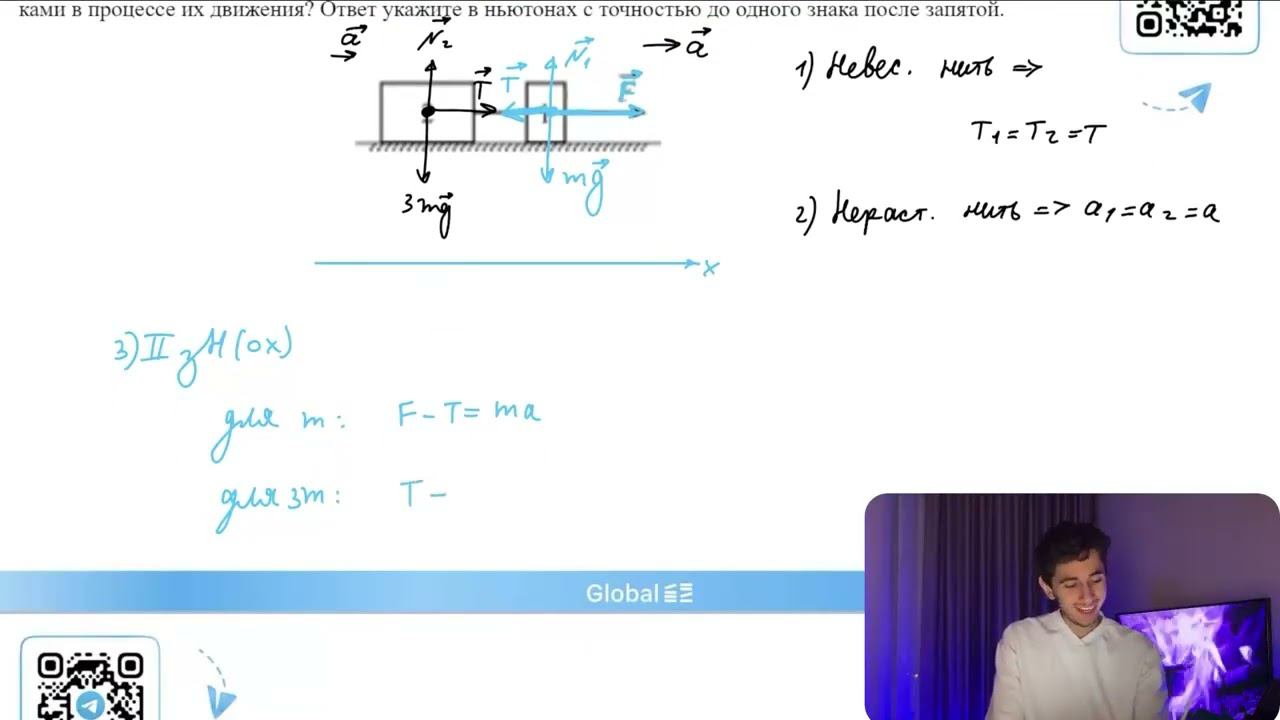 ками в процессе их движения? Ответ укажите в ньютонах с точностью до одного знака после запятой.
a N₂ T T N₁ F → a
3mg mg
x
1) Невес. нить ⇒
T₁ = T₂ = T
2) Нераст. нить => a₁ = a₂ = a
3) II зН (ox)
для m: F - T = ma
для 3m: T -
Global EE